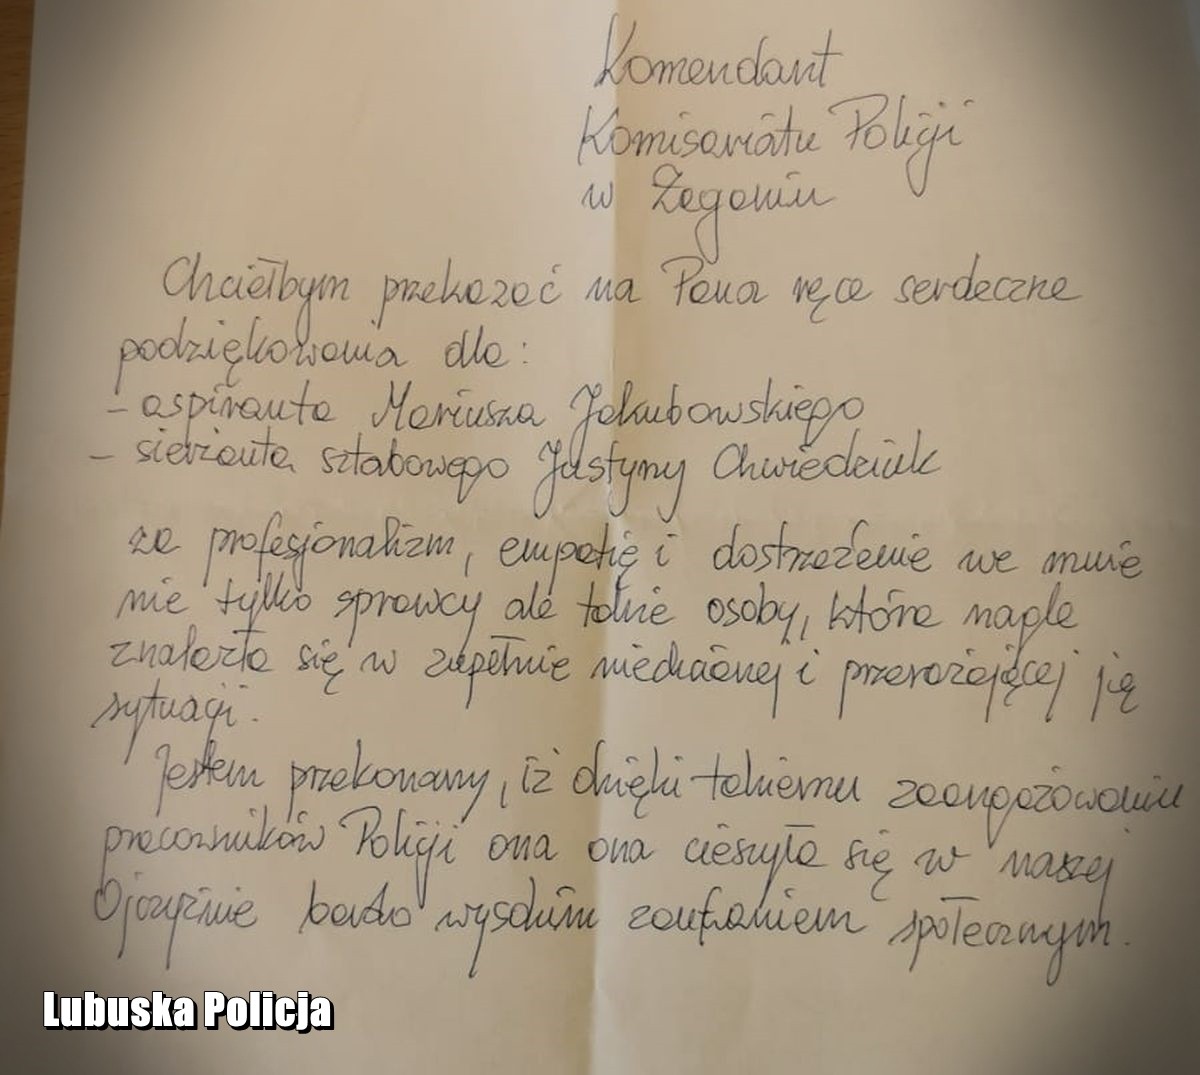 Komendant
Komisariatu Policji
w Żaganiu
Chciałbym przekazać na Pana ręce serdeczne
podziękowania dla:
- aspiranta Mariusza Jakubowskiego
- sierżanta sztabowego Justyny Chwiedziuk
za profesjonalizm, empatię i dostrzeżenie we mnie
nie tylko sprawcy ale także osoby, która nagle
znalazła się w zupełnie nieznanej i przerażającej ją
sytuacji.
Jestem przekonany, iż dzięki takiemu zaangażowaniu
pracowników Policji ona ona cieszyła się w naszej
Ojczyźnie bardzo wysokim zaufaniem społecznym.
Lubuska Policja